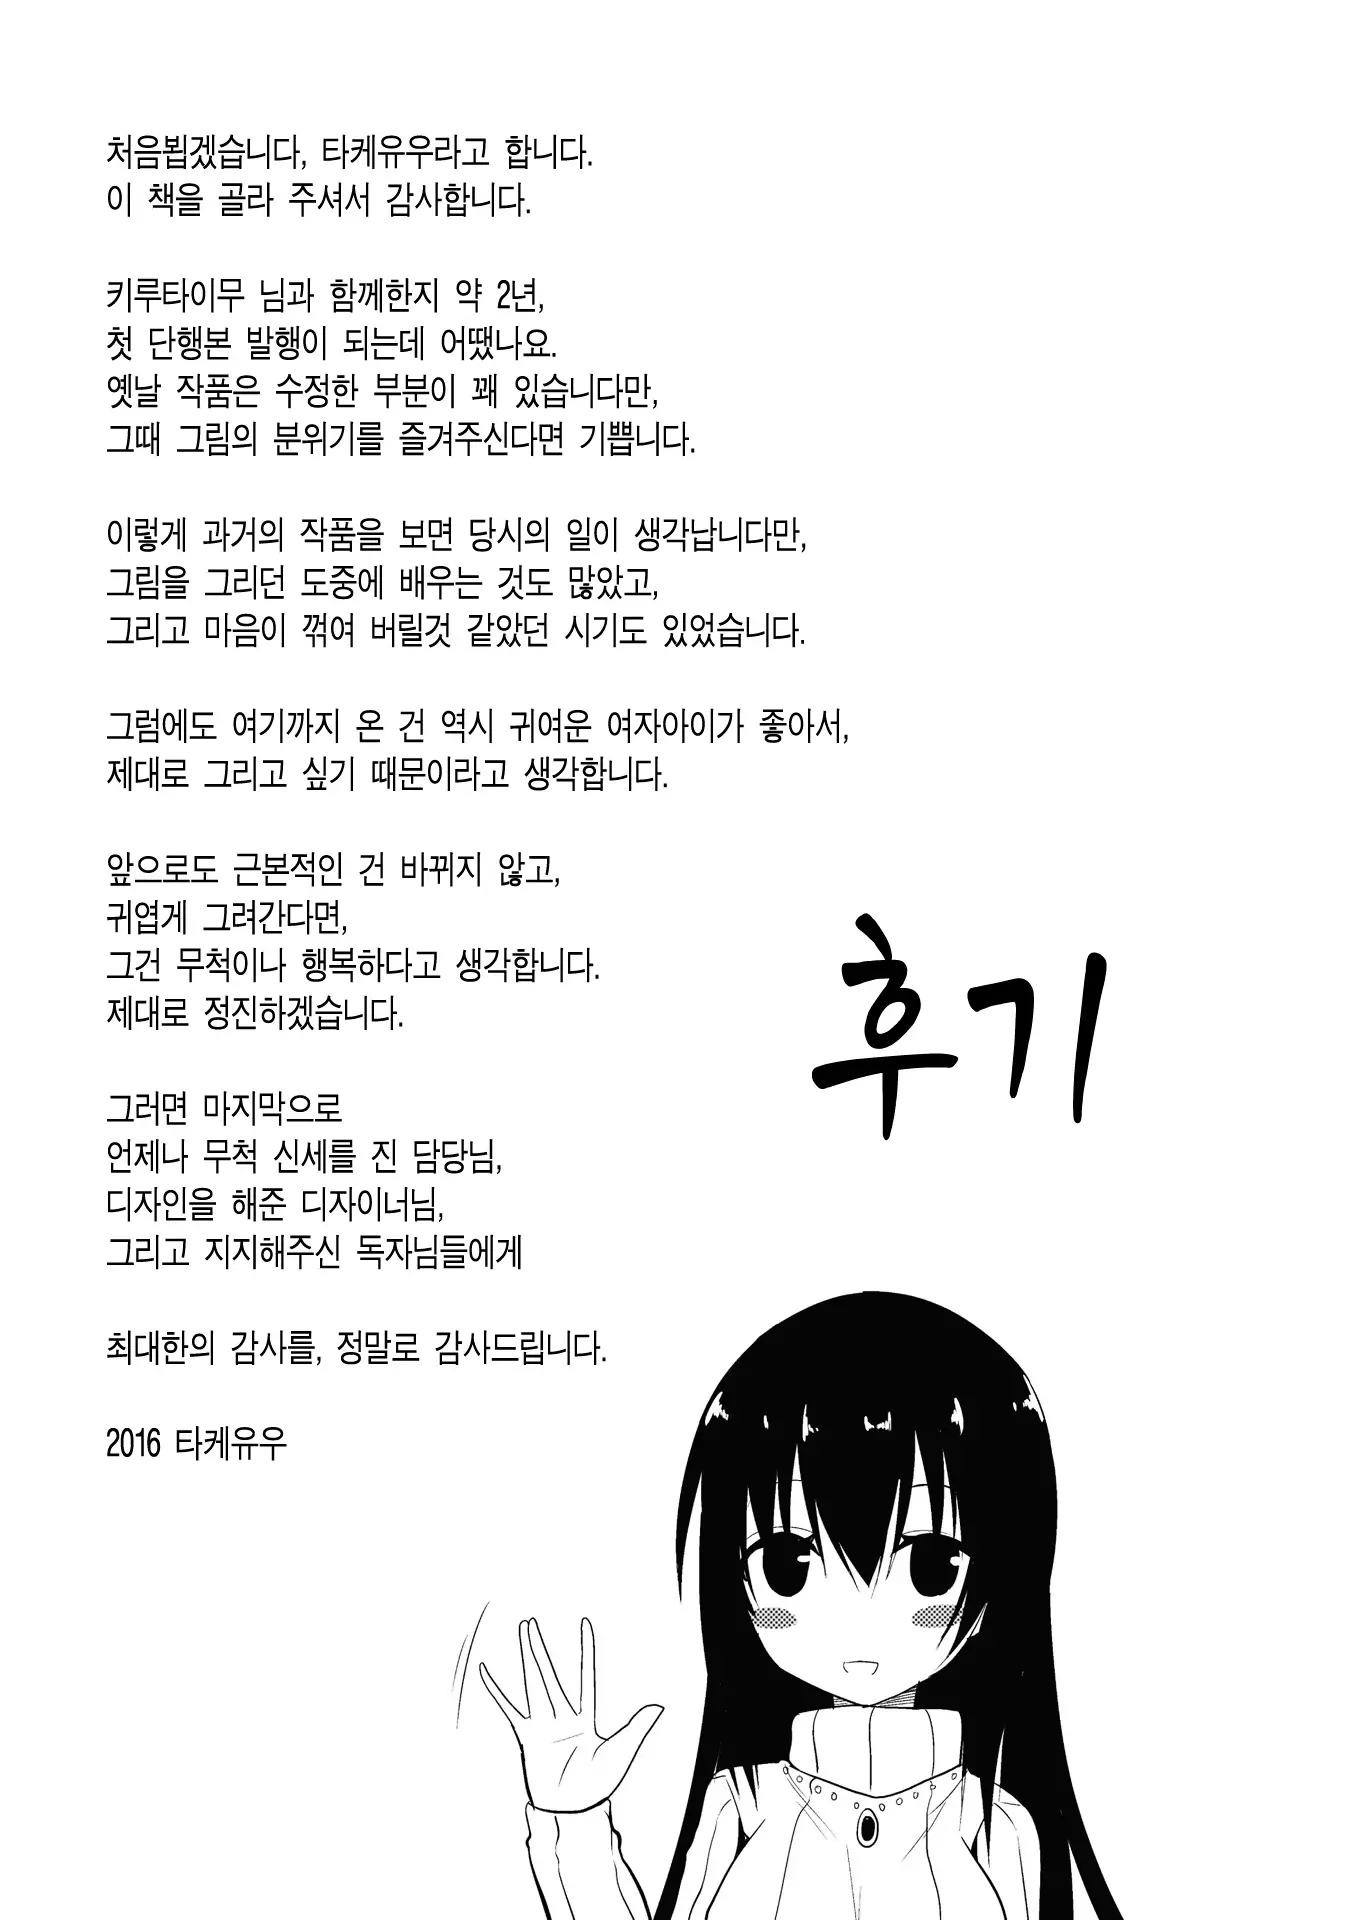 처음뵙겠습니다, 타케유우라고 합니다.
이 책을 골라 주셔서 감사합니다.
키루타이무 님과 함께한지 약 2년,
첫 단행본 발행이 되는데 어땠나요.
옛날 작품은 수정한 부분이 꽤 있습니다만,
그때 그림의 분위기를 즐겨주신다면 기쁩니다.
이렇게 과거의 작품을 보면 당시의 일이 생각납니다만,
그림을 그리던 도중에 배우는 것도 많았고,
그리고 마음이 꺾여 버릴것 같았던 시기도 있었습니다.
그럼에도 여기까지 온 건 역시 귀여운 여자아이가 좋아서,
제대로 그리고 싶기 때문이라고 생각합니다.
앞으로도 근본적인 건 바뀌지 않고,
귀엽게 그려간다면,
그건 무척이나 행복하다고 생각합니다.
제대로 정진하겠습니다.
그러면 마지막으로
언제나 무척 신세를 진 담당님,
디자인을 해준 디자이너님,
그리고 지지해주신 독자님들에게
최대한의 감사를, 정말로 감사드립니다.
2016 타케유우
후기